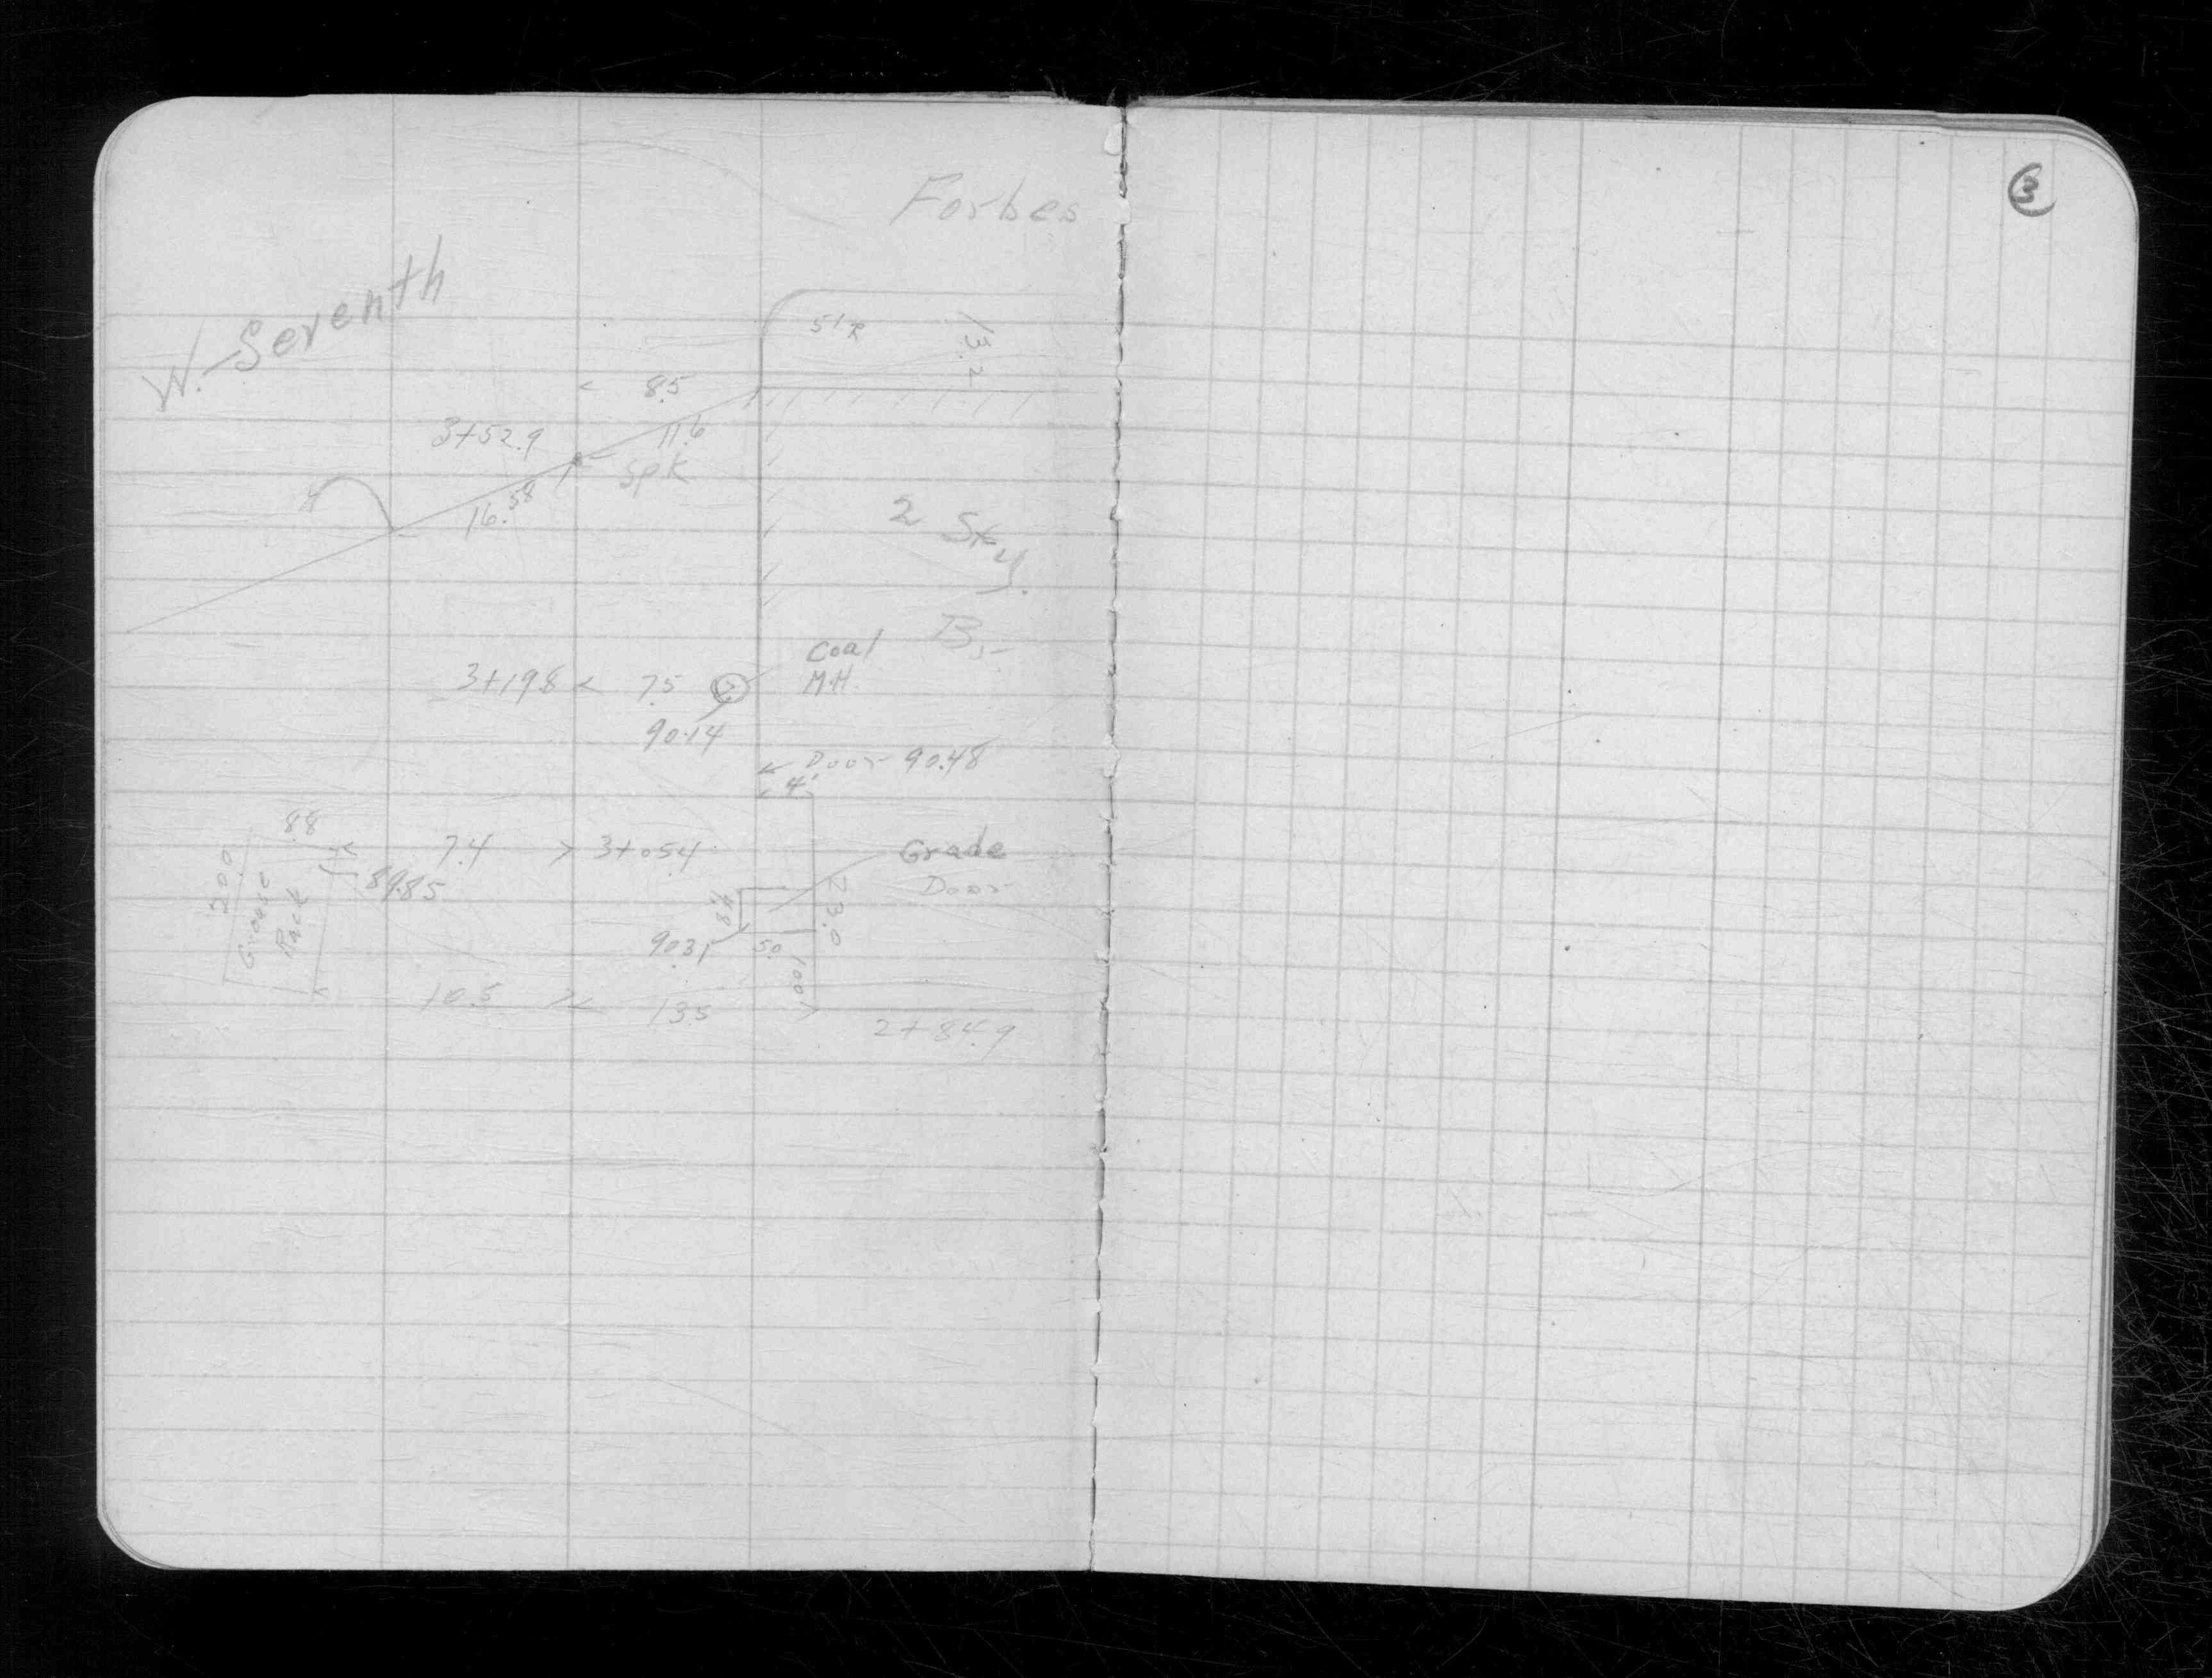 3
Forbes
W. Seventh
5' R
13.2
8.5
3+52.9
11.6
Spk
16.58
2 Sty.
B
Coal
3+19.8 < 7.5
M.H.
90.14
Door 90.48
4'
8.8
7.4 > 3+05.4
Grade
Door
20.0
Grease
Rack
89.85
4.8
23.0
90.31
5.0
10.0
10.5
13.5
2+84.9